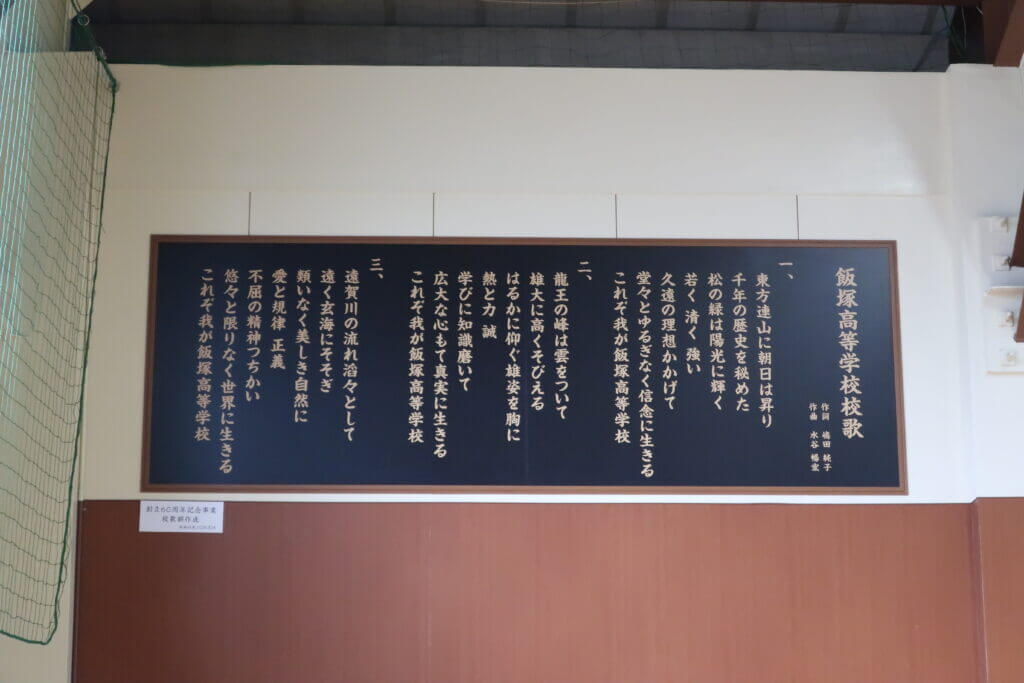 飯塚高等学校校歌
作詞 嶋田 純子
作曲 水谷 暢宏
一、
東方連山に朝日は昇り
千年の歴史を秘めた
松の緑は陽光に輝く
若く 清く 強い
久遠の理想かかげて
堂々とゆるぎなく信念に生きる
これぞ我が飯塚高等学校
二、
龍王の峰は雲をついて
雄大に高くそびえる
はるかに仰ぐ雄姿を胸に
熱と力 誠
学びに知識磨いて
広大な心もて真実に生きる
これぞ我が飯塚高等学校
三、
遠賀川の流れ滔々として
遠く玄海にそそぎ
類いなく美しき自然に
愛と規律 正義
不屈の精神つちかい
悠々と限りなく世界に生きる
これぞ我が飯塚高等学校
創立60周年記念事業
校歌額作成